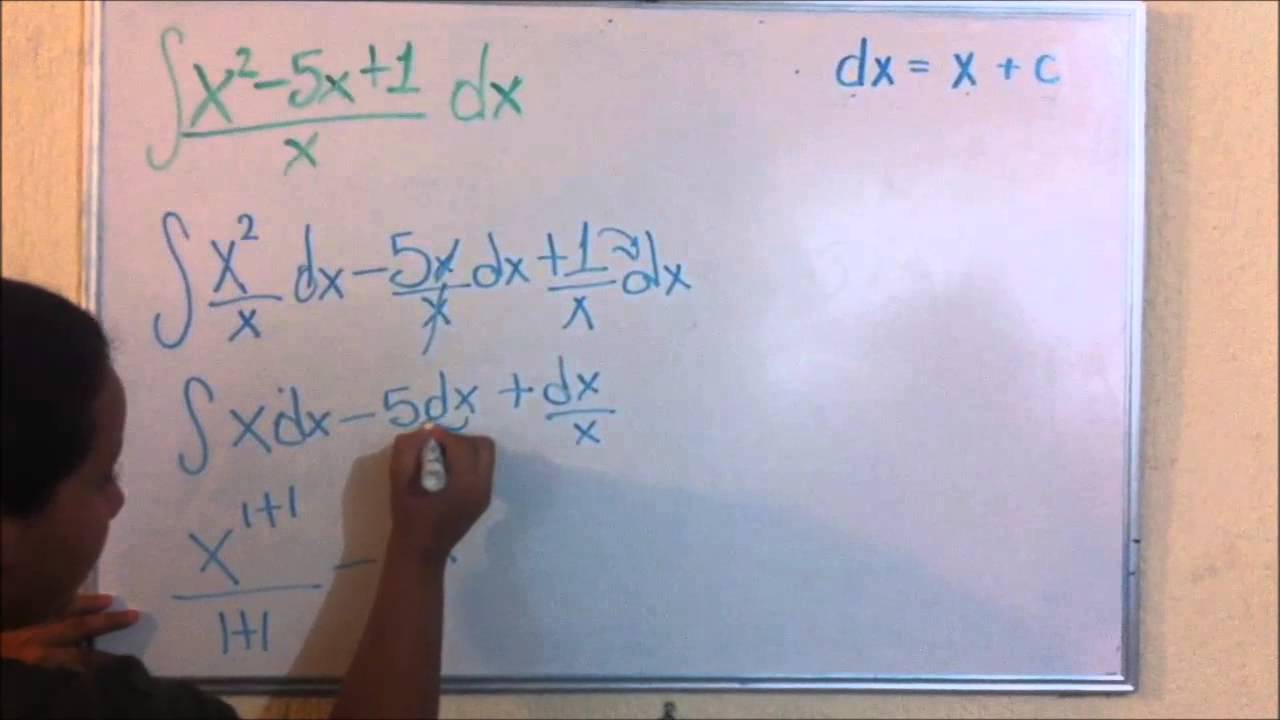 ∫ (x² - 5x + 1)/x dx
dx = x + c
∫ x²/x dx - 5x/x dx + 1/x dx
∫ x dx - 5dx + dx/x
x^(1+1)/(1+1) -